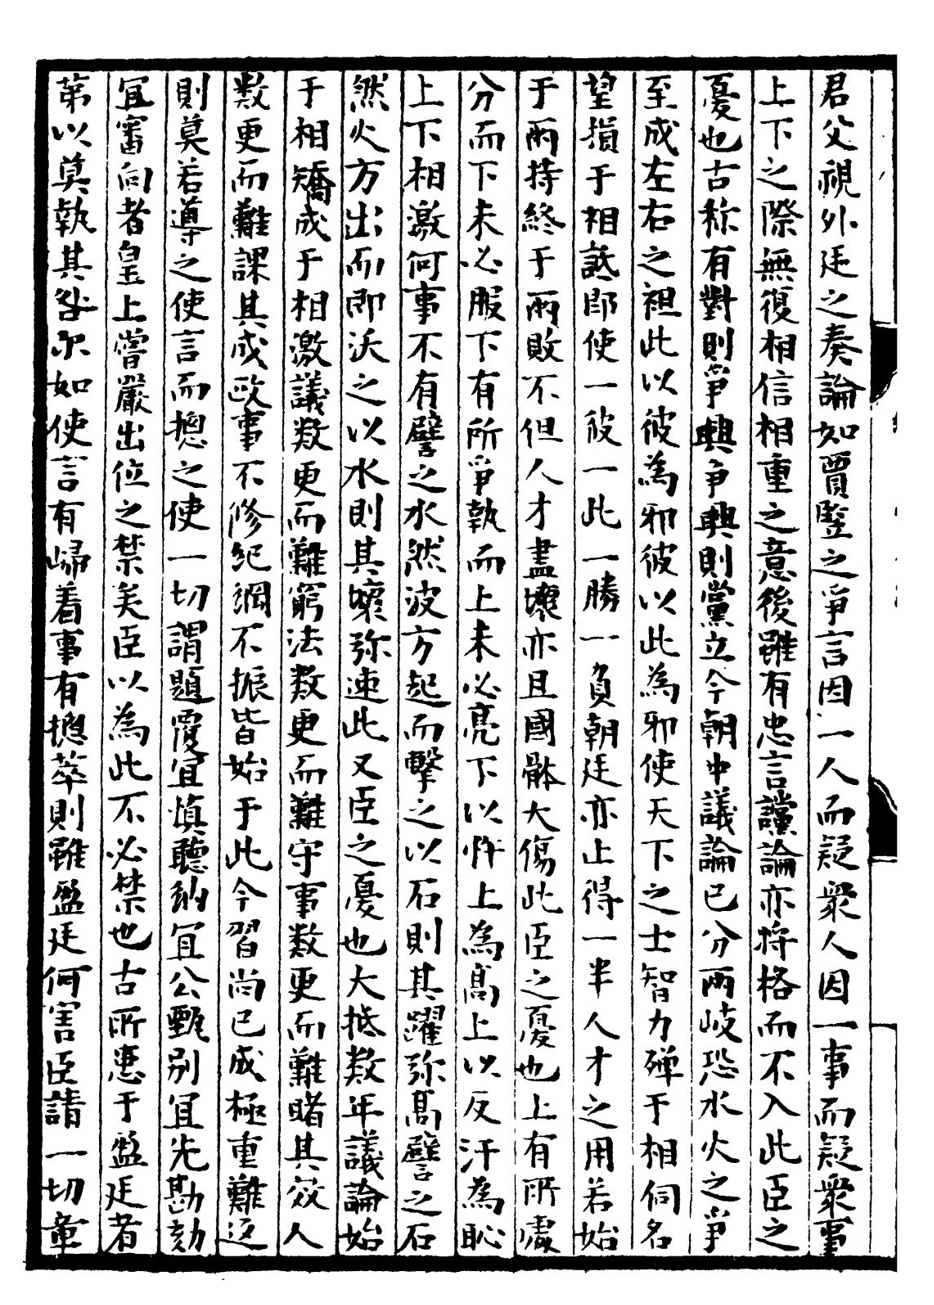 君父視外廷之奏論如賈豎之爭言因一人而疑衆人因一事而疑衆事
上下之際無復相信相重之意後雖有忠言讜論亦将格而不入此臣之
憂也古称有對則爭興爭興則黨立今朝中議論已分兩岐恐水火之爭
至成左右之袒此以彼為邪彼以此為邪使天下之士智力殫于相伺名
望損于相詆即使一彼一此一勝一負朝廷亦止得一半人才之用若始
于兩持終于兩敗不但人才盡壞亦且國骵大傷此臣之憂也上有所處
分而下未必服下有所爭執而上未必亮下以忤上為高上以反汗為恥
上下相激何事不有譬之水然波方起而擊之以石則其躍弥高譬之石
然火方出而即沃之以水則其壞弥速此又臣之憂也大抵数年議論始
于相矯成于相激議数更而難窮法数更而難守事数更而難睹其效人
数更而難課其成政事不修紀綱不振皆始于此今習尚已成極重難返
則莫若導之使言而摠之使一切謂題覆宜慎聽納宜公甄别宜先勘劾
宜審向者皇上嘗嚴出位之禁矣臣以為此不必禁也古所患于盈廷者
第以莫執其咎尔如使言有歸着事有摠萃則雖盈廷何害臣請一切章